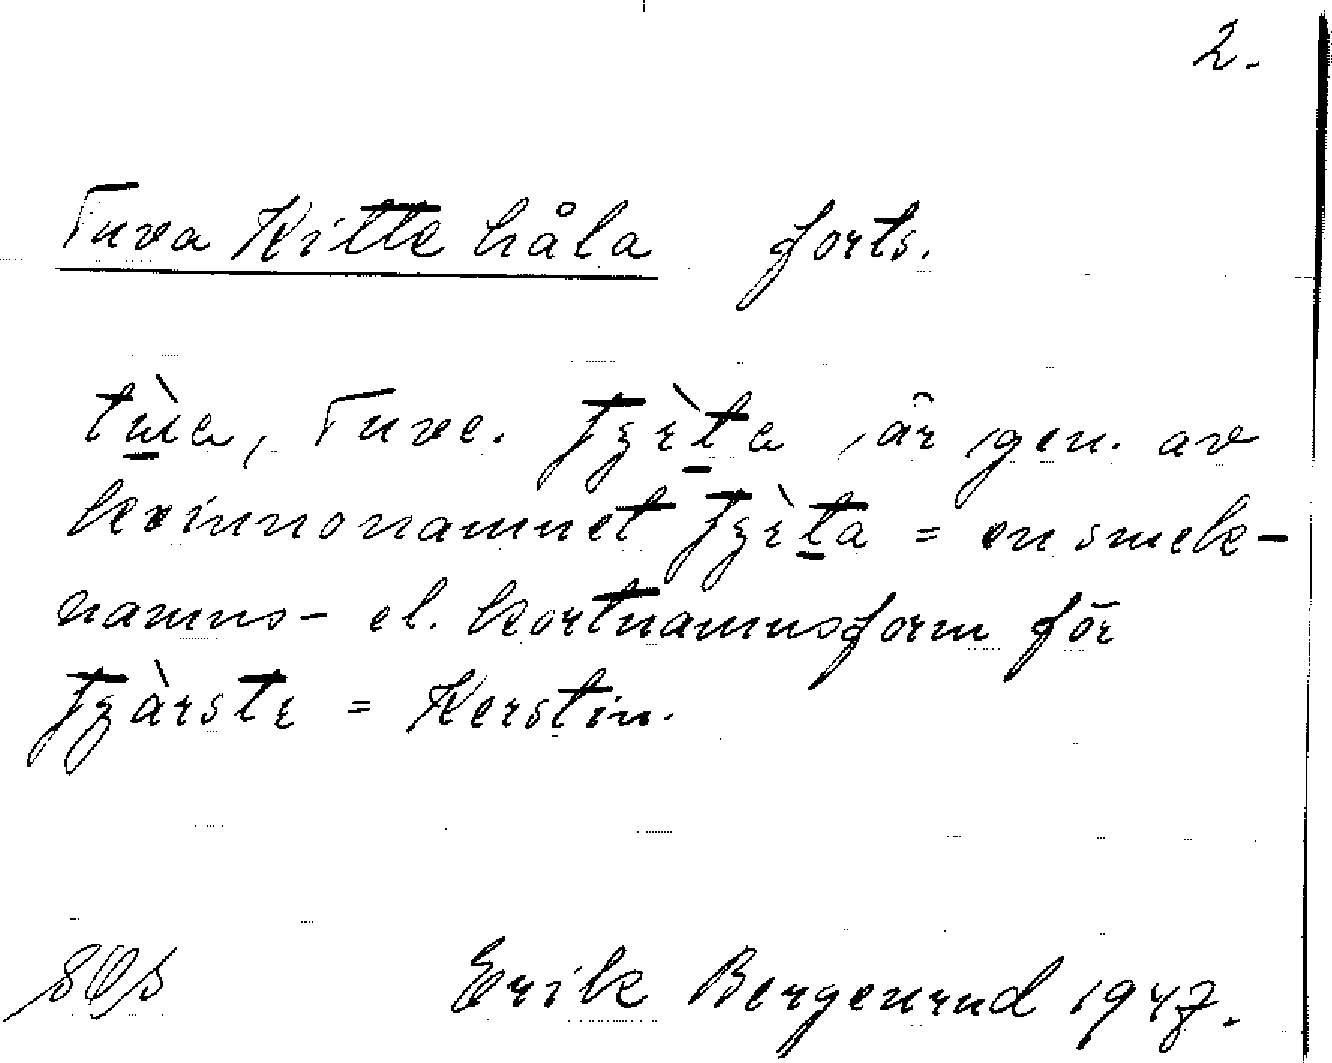 2.
Tuva Kitte håla forts.
tùa, Tuve. Tʒèta är gen. av
kvinnonamnet Tʒèta = en smek-
namns- el. kortnamnsform för
Tʒàrstɛ = Kerstin.
Erik Bergenrud 1947.